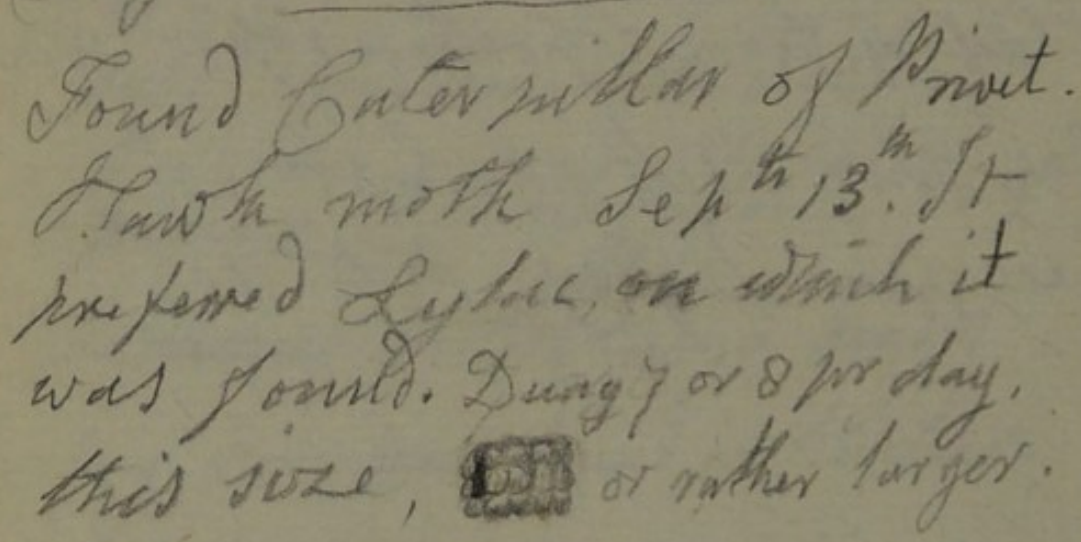 Found Caterpillar of Privet.
Hawk moth Septh 13.th It
preferred Lylac, on which it
was found. Dung 7 or 8 pr day,
this size, or rather larger.